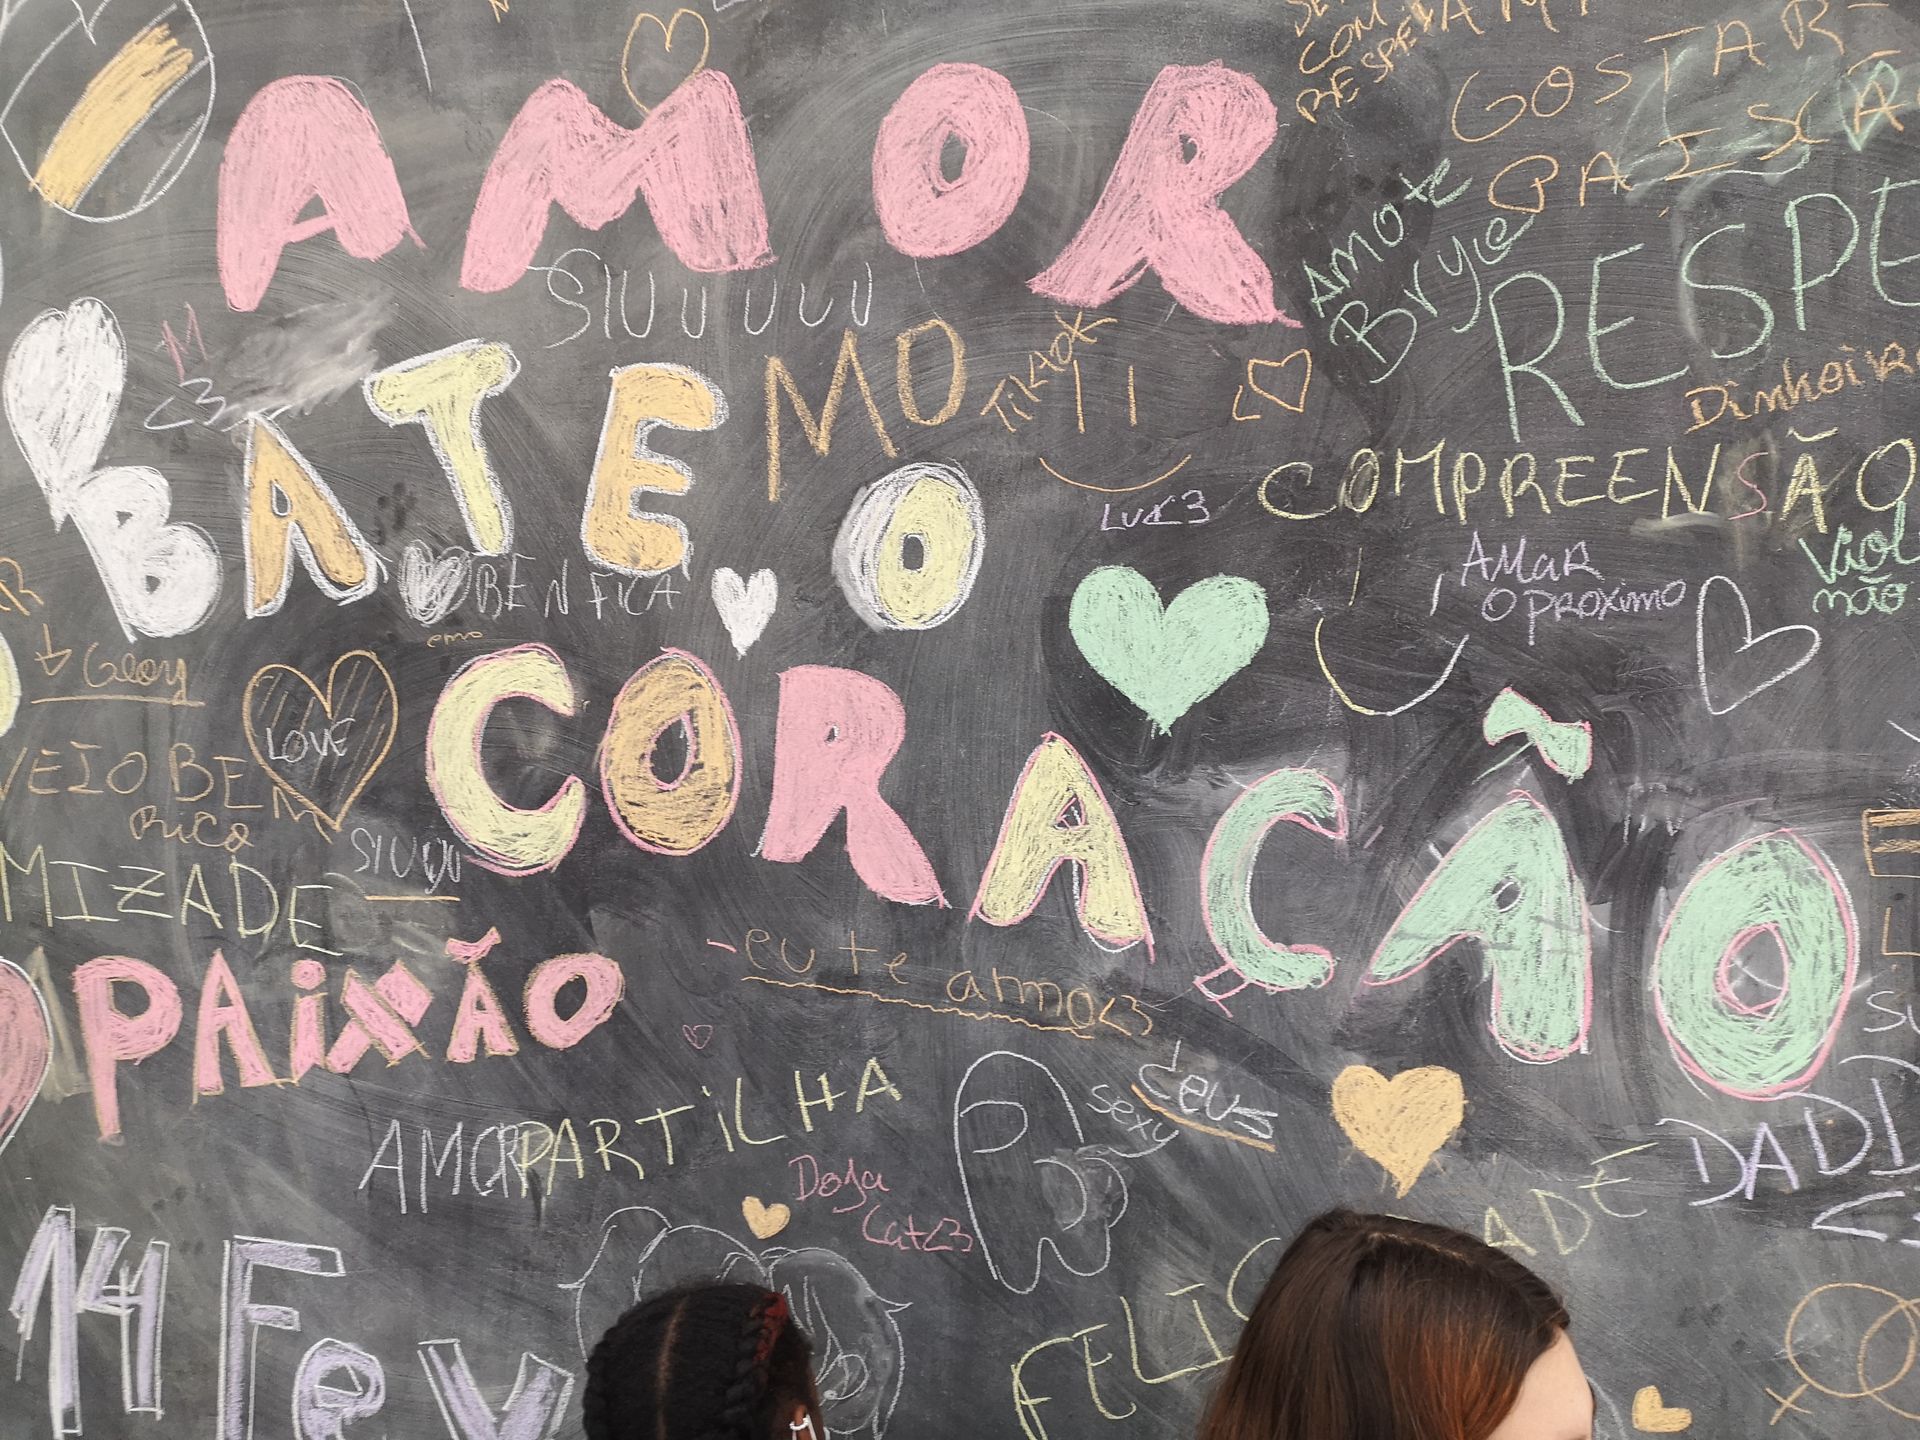 COM
RESPEITAR
GOSTAR
AMOR
AMO-te
Bryce
RESPE
SIUUUUU
M
<3
BATE
MO
TikTok
O
Dinheiro
COMPREENSÃO
Luz<3
AMaR
O PROXIMO
Viol
não
BENFICA
emo
Geory
LOVE
CORAÇÃO
VEIO BE
Rico
SIUUU
MIZADE
PAIXÃO
-eu te amo<3
AMOR
PARTiLHA
Deus
sexy
Doja
Cat<3
DADD
14 Fev
FELIC
ADE